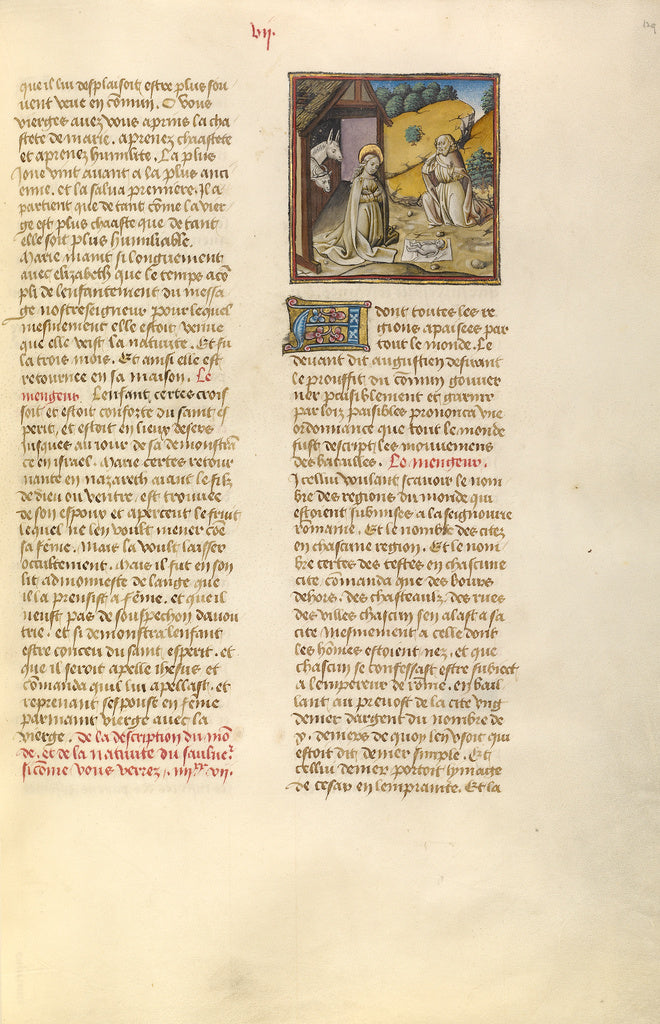 vij.
que il lui desplaisoit estre plus sou
uent veue en cõmun. O vous
vierges auez vous aprins la cha
stete de marie. aprenez chaastete
et aprenez humilite. La plus
ione vint auant a la plus anci
enne. et la salua premiere. Il a
partient que de tant cõme la vier
ge est plus chaaste que de tant
elle soit plus humiliable.
Marie maint si longuement
auec elizabeth que le temps acõ
pli de lenfantement du messa
ge nostreseigneur pour lequel
mesmement elle estoit venue
que elle veist la natiuite. Et fu
la trois mois. Et ainsi elle est
retournee en sa maison. Le
mengeur. Lenfant certes crois
soit et estoit conforte du saint es
perit. et estoit en lieux desers
iusques au iour de sa demonstrã
ce en israel. Marie certes retour
nante en nazareth aiant le filz
de dieu ou ventre. est trouuee
de son espoux et apercent le fruit
lequel ne len voult mener cõe
sa fẽme. Mais la voult laisser
occultement. Mais il fut en son
lit admonneste de lange que
il la prensist a fẽme. et que il
neust pas de souspechon dauou
trie. et si demonstra lenfant
estre conceu du saint esperit. et
que il seroit apelle ihesus et
cõmanda quil lui apellast. et
reprenant sespouse en fẽme
parmaint vierge auec la
vierge. de la description du mõ
de. et de la natiuite du saulue.r
si cõme vous verrez. iiij.xx vij.
A dont toutes les re
gions apaisees par
tout le monde. Le
deuant dit augustien desirant
le prouffit du cõmun gouuer
ner paisiblement et garnir
par loix paisibles prononca vne
ordonnance que tout le monde
fust descript les mouuemens
des batailles. Le mengeur.
Icellui voulant scauoir le nom
bre des regions du monde qui
estoient submises a la seignourie
rommaine. Et le nombre des citez
en chascune region. Et le nom
bre certes des testes en chascune
cite. cõmanda que des bours
dehors. des chasteaulx. des rues
des villes chascun sen alast a sa
cite mesmement a celle dont
les hõmes estoient nez. et que
chascun se confessast estre subiect
a lempereur de rõme. en bail
lant au preuost de la cite vng
denier dargent du nombre de
x. deniers de quoy len vsoit qui
estoit dit denier simple. Et
cellui denier portoit lymage
de cesar en lemprainte. Et la